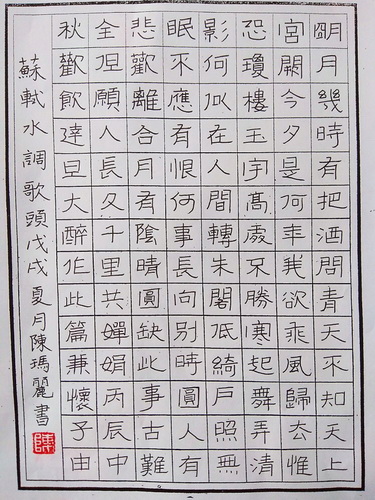 明月幾時有把酒問青天不知天上
宮闕今夕是何年我欲乘風歸去惟
恐瓊樓玉宇高處不勝寒起舞弄清
影何似在人間轉朱閣低綺戶照無
眠不應有恨何事長向別時圓人有
悲歡離合月有陰晴圓缺此事古難
全但願人長久千里共嬋娟丙辰中
秋歡飲達旦大醉作此篇兼懷子由
蘇軾水調歌頭戊戌夏月陳瑪麗書
陳